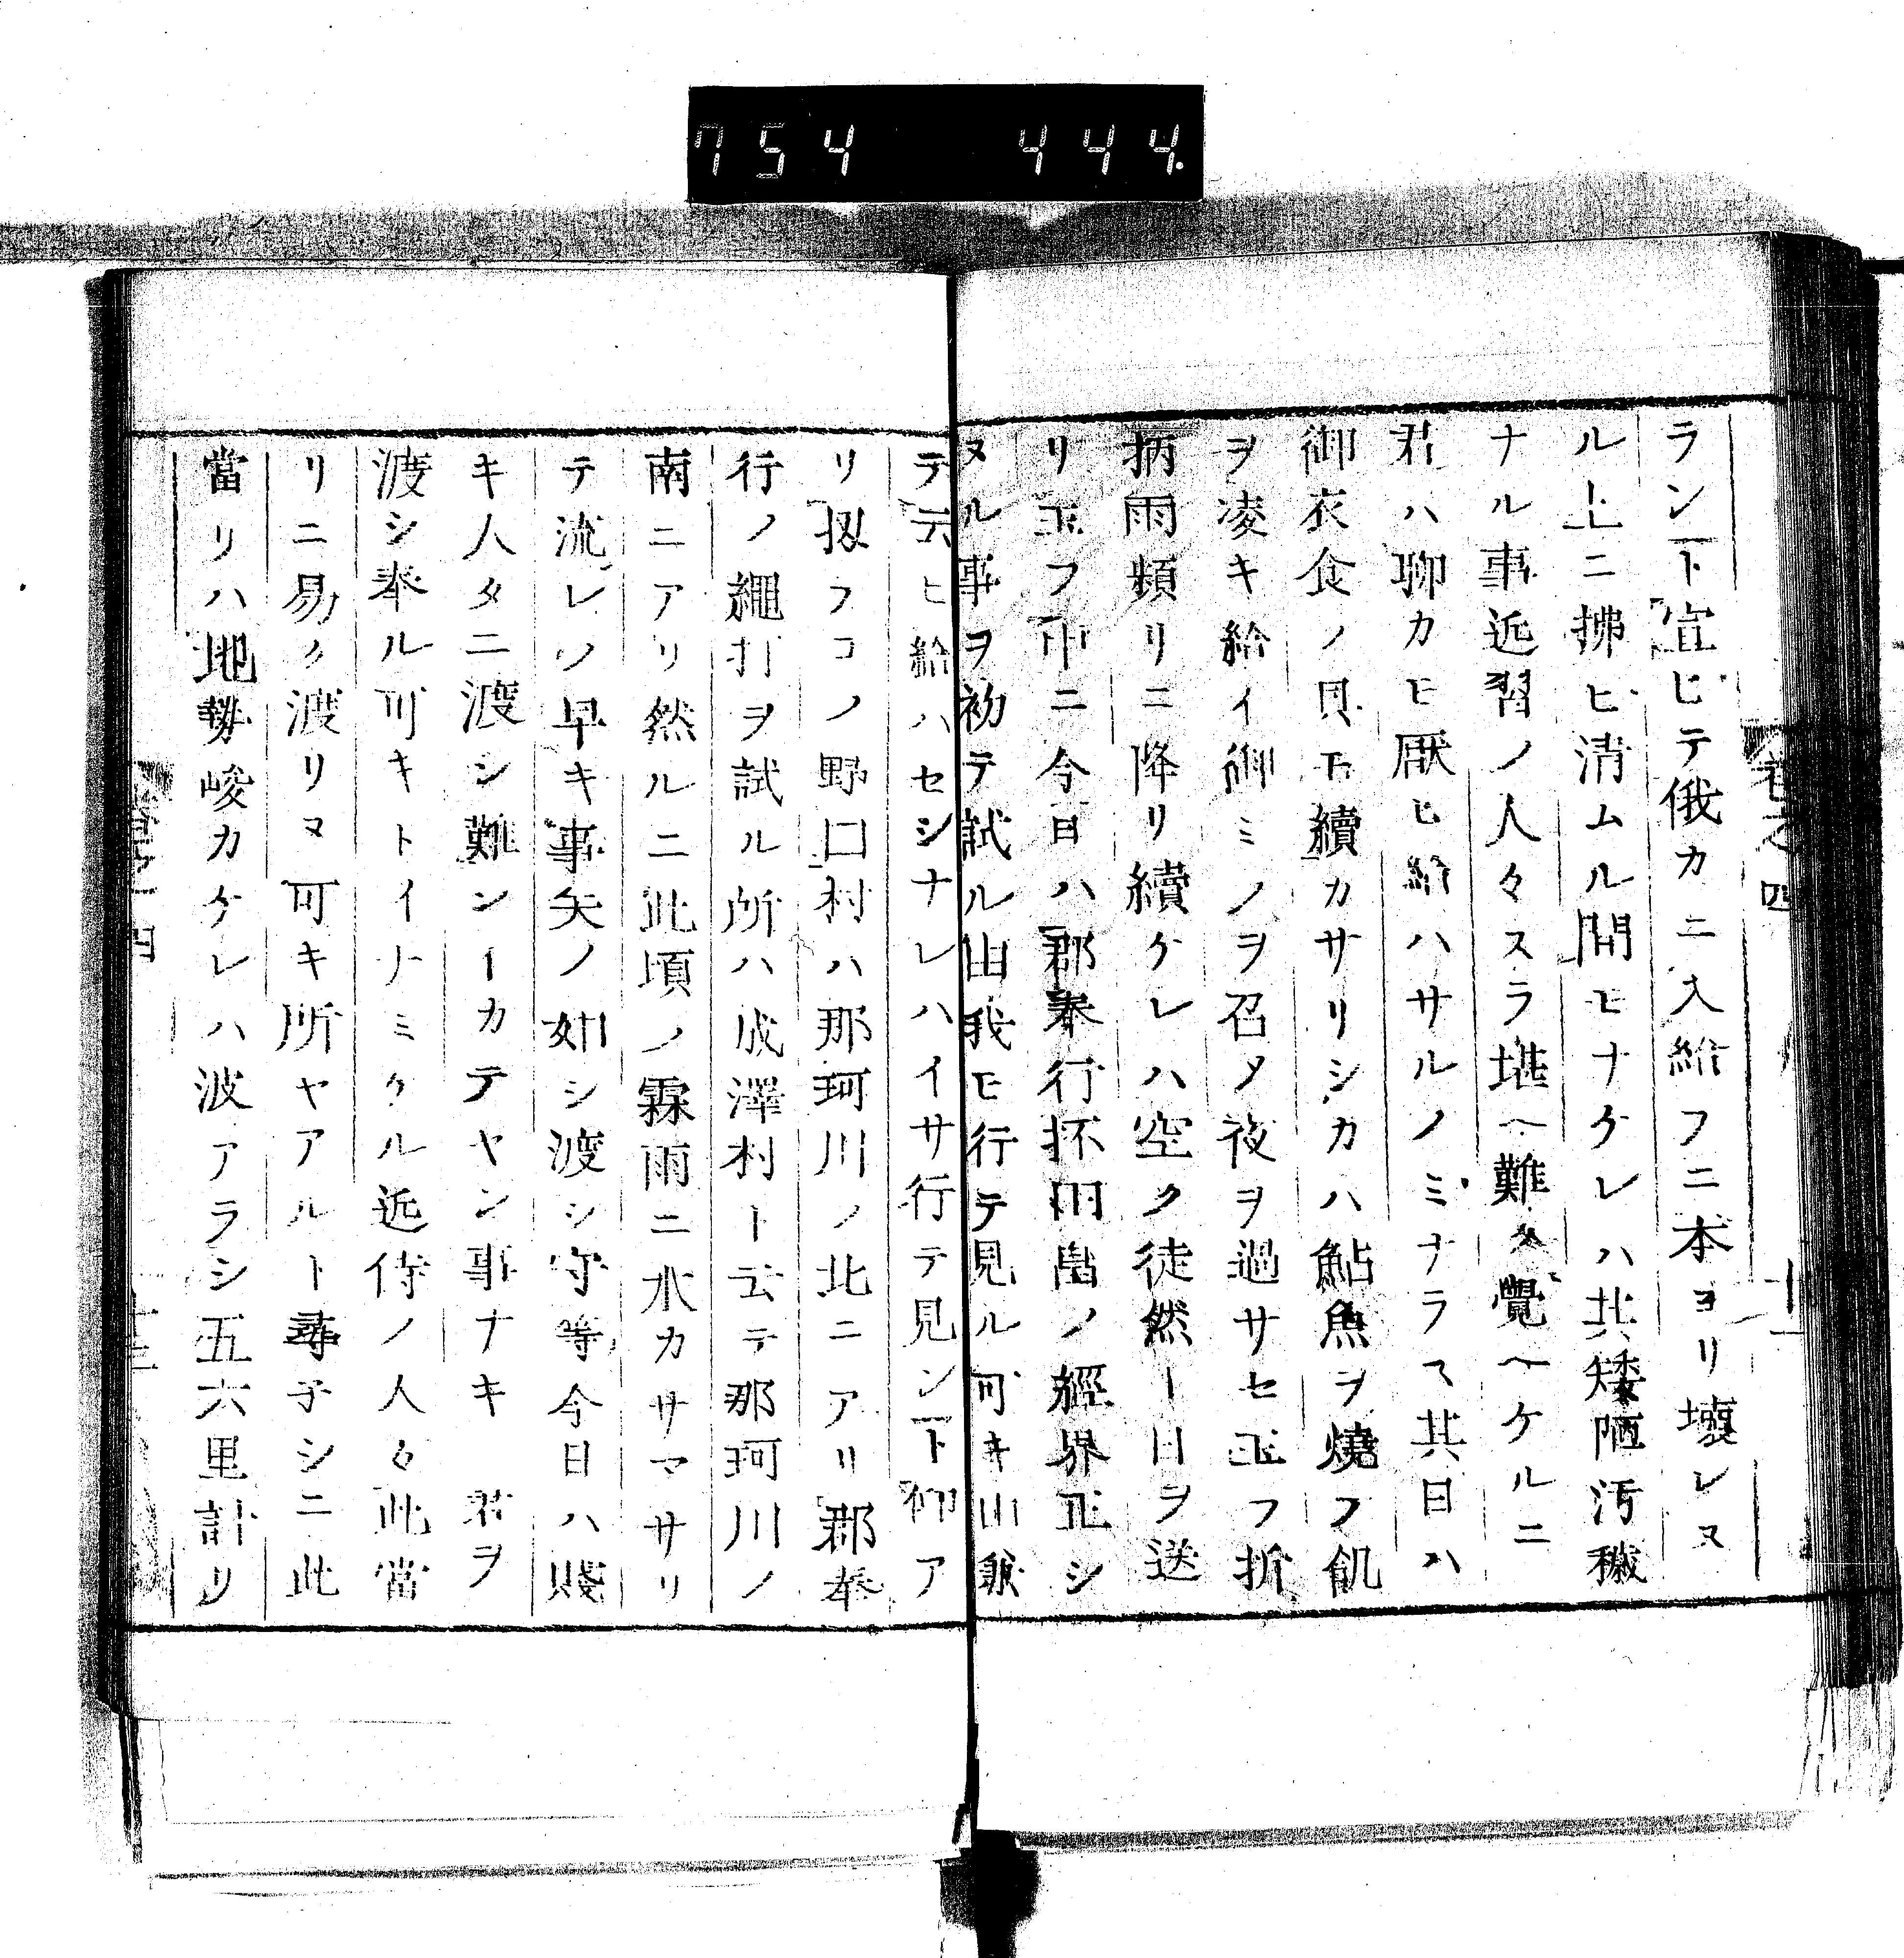 754 444.
卷之四 十二
ラン┐ト宣ヒテ俄カニ入給フニ本ヨリ壞レヌ
ル上ニ拂ヒ清ムル間モナケレハ其矮陋汚穢
ナル事近習ノ人々スラ堪ヘ難ク覺ヘケルニ
君ハ聊カモ厭ヒ給ハサルノミナラス其日ハ
御衣食ノ具モ續カサリシカハ鮎魚ヲ燒フ飢
ヲ凌キ給イ御ミノヲ召メ夜ヲ過サセ玉フ折
柄雨頻リニ降リ續ケレハ空ク徒然一日ヲ送
リ玉フ中ニ今日ハ郡奉行抔田畠ノ經界正シ
ヌル事ヲ初テ試ル由我モ行テ見ル可キ由戲
テ云ヒ給ハセシナレハイサ行テ見ン┐ト仰ア
リ扨フコノ野口村ハ那珂川ノ北ニアリ郡奉
行ノ繩打ヲ試ル所ハ成澤村ト云テ那珂川ノ
南ニアリ然ルニ此頃ノ霖雨ニ水カサマサリ
テ流レノ早キ事矢ノ如シ渡シ守等今日ハ賤
キ人タニ渡シ難ンーカテヤン事ナキ 君ヲ
渡シ奉ル可キトイナミケル近侍ノ人々此當
リニ易ク渡リヌ可キ所ヤアルト尋子シニ此
當リハ地勢峻カケレハ波アラシ五六里計リ
卷之四
十二